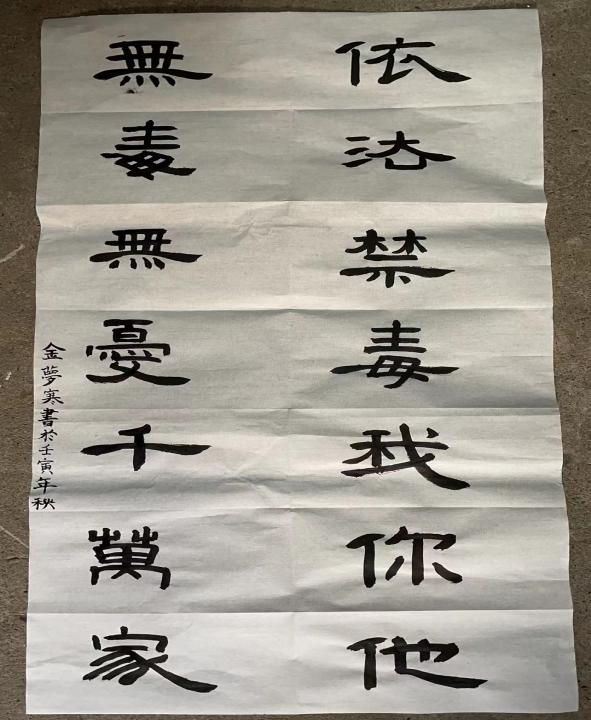 依法禁毒我你他
無毒無憂千萬家
金夢寒書於壬寅年秋